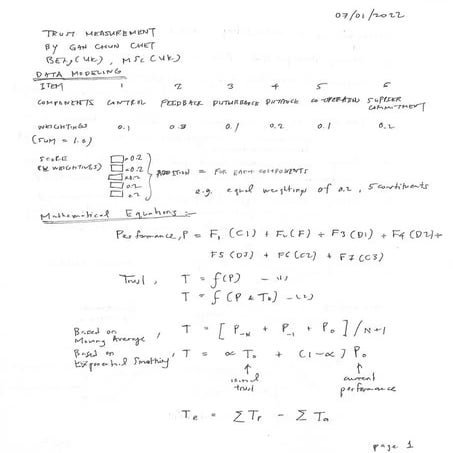 07/01/2022
TRUST MEASUREMENT
BY GAN CHUN CHET
BEng (UK), MSc (UK)
DATA MODELING
ITEM 1 2 3 4 5 6
COMPONENTS CONTROL FEEDBACK DISTURBANCE DISTANCE CO-OPERATION SUPPLIER COMMITMENT
WEIGHTINGS 0.1 0.3 0.1 0.2 0.1 0.2
(SUM = 1.0)
SCORE
(& WEIGHTINGS)
0.2
0.2
0.2
0.2
0.2
ADDITION = FOR EACH COMPONENTS
e.g. equal weighting of 0.2, 5 constituents
Mathematical Equations :-
Performance, P = F1 (C1) + F2 (F) + F3 (D1) + F4 (D2) +
F5 (D3) + F6 (C2) + F7 (C3)
Trust, T = f(P) — (1)
T = f (P & T0) — (2)
Based on Moving Average, T = [ P-N + P-1 + P0 ] / N+1
Based on Exponential Smoothing, T = ∝ T0 + (1-∝) P0
↑ initial trust
↑ current performance
Te = ΣTr - ΣTa
page 1